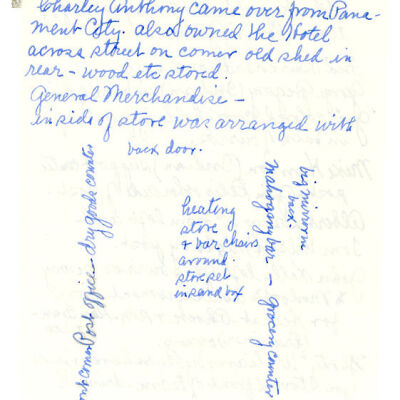 Charley Anthony came over from Pana-
ment City. also owned the Hotel
across street on corner old shed in
rear - wood etc stored.
General Merchandise -
inside of store was arranged with
back door.
Post Office - dry goods counter
heating
store
& bar chairs
around.
store set
in sand box
Mahogany bar - grocery counter
big mirror in
back.
front corner